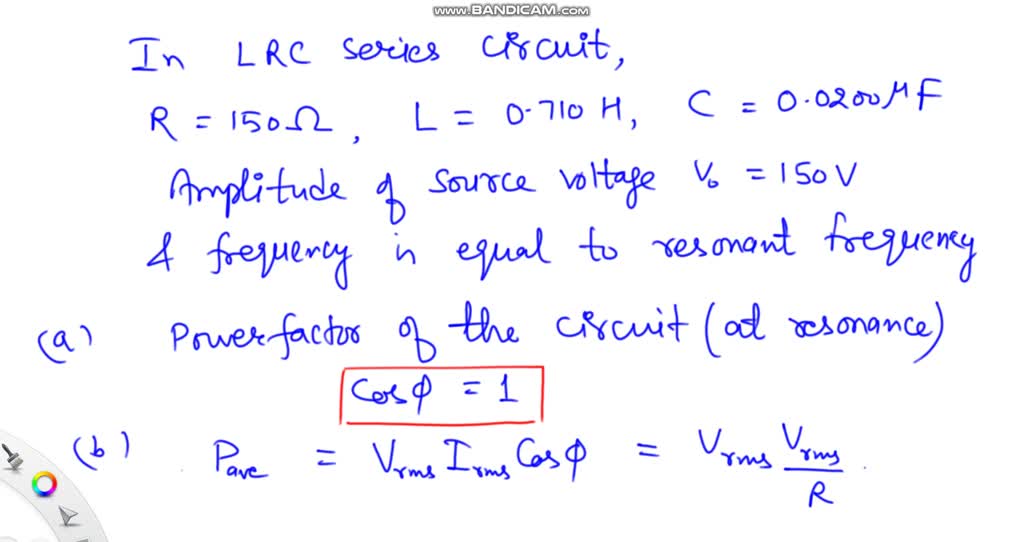 www.BANDICAM.com
In LRC series circuit,
R = 150Ω, L = 0.710 H, C = 0.0200 μF
Amplitude of source voltage V₀ = 150 V
& frequency is equal to resonant frequency
(a) Power factor of the circuit (at resonance)
Cos φ = 1
(b) Pave = Vrms Irms Cos φ = Vrms Vrms/R